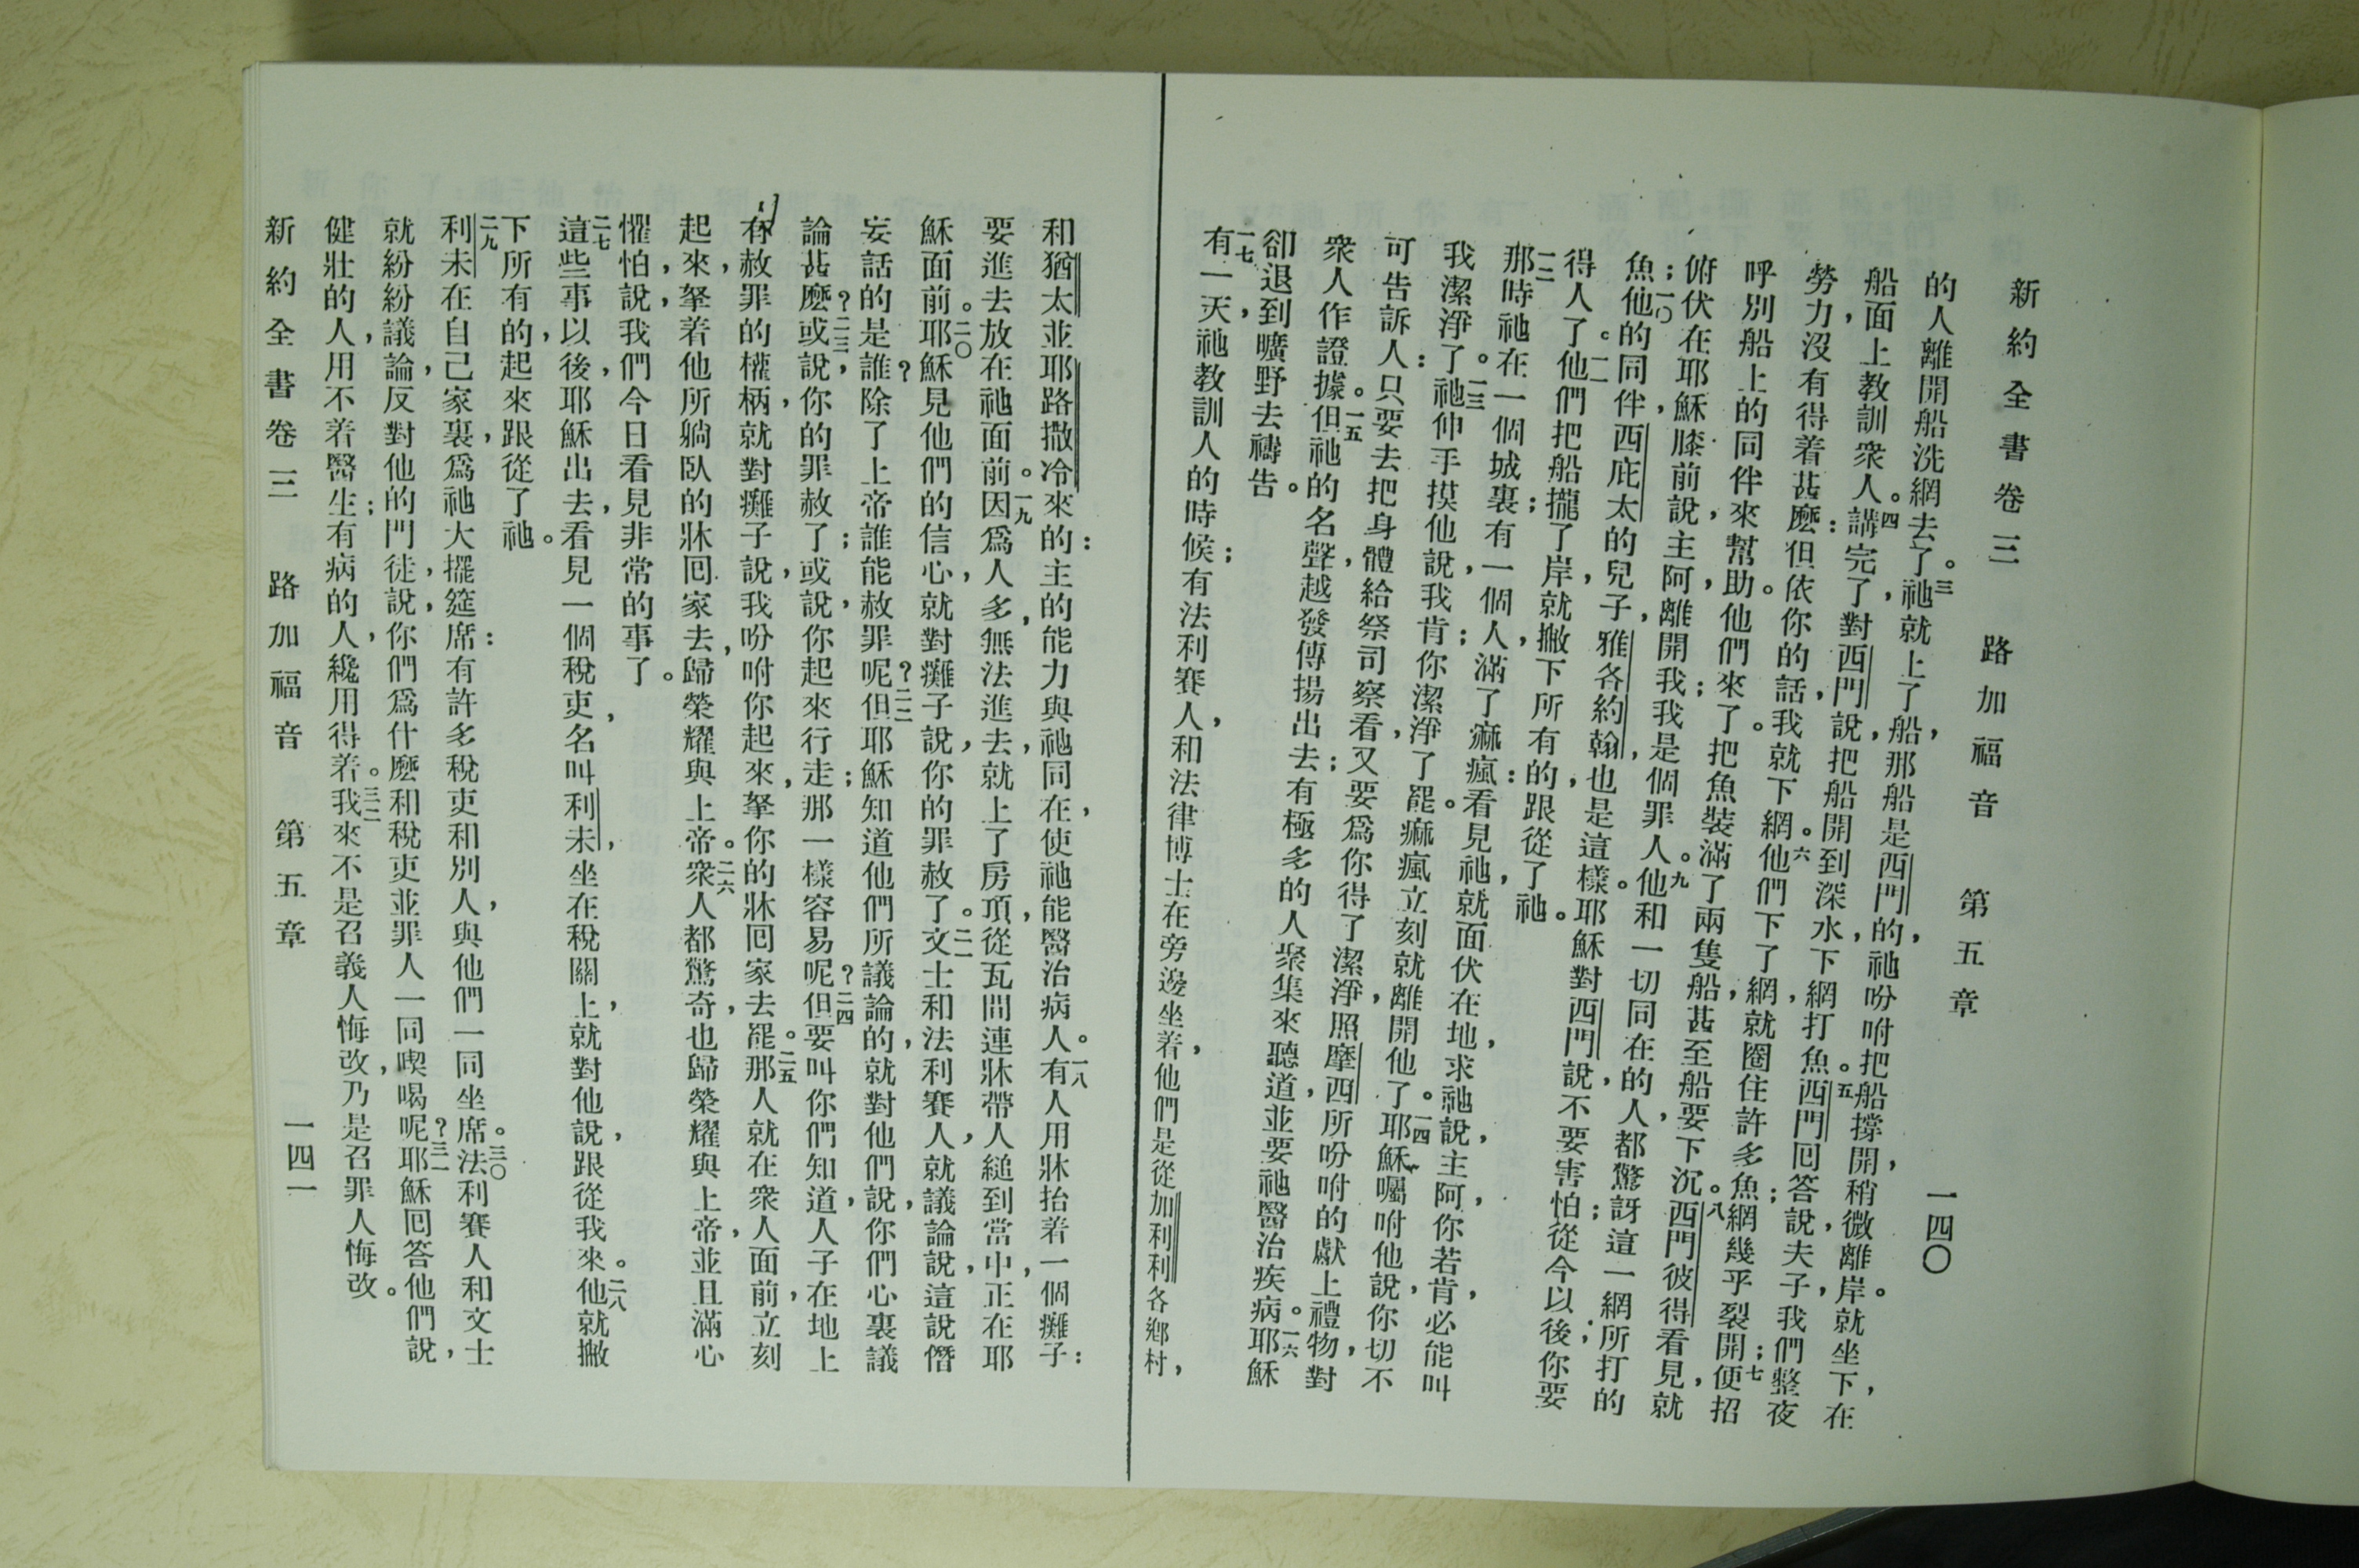 新約全書卷三　路加福音　第五章　一四〇
的人離開船洗網去了。三祂就上了船，那船是西門的，祂吩咐把船撐開，稍微離岸。就坐下，在
船面上，教訓衆人。四講完了，對西門說，把船開到深水，下網打魚。五西門回答說，夫子，我們整夜
勞力沒有得着甚麼：但依你的話，我就下網。六他們下了網，就圈住許多魚；網幾乎裂開；七便招
呼別船上的同伴來幫助。他們來了。把魚裝滿了兩隻船，甚至船要下沉。八西門彼得看見，就
俯伏在耶穌膝前，說，主阿，離開我；我是個罪人。九他和一切同在的人，都驚訝這一網所打的
魚；一〇他的同伴，西庇太的兒子，雅各約翰，也是這樣。耶穌對西門說，不要害怕；從今以後；你要
得人了。一一他們把船攏了岸，就撇下所有的，跟從了祂。
一二那時祂在一個城裏；有一個人，滿了痲瘋：看見祂，就面伏在地，求祂說，主阿，你若肯，必能叫
我潔淨了。一三祂伸手摸他，說，我肯；你潔淨了罷。痲瘋立刻就離開他了。一四耶穌囑咐他，說，你切不
可告訴人：只要去把身體給祭司察看，又要爲你得了潔淨，照摩西所吩咐的獻上禮物，對
衆人作證據。一五但祂的名聲，越發傳揚出去；有極多的人聚集來聽道，並要祂醫治疾病。一六耶穌
卻退到曠野去禱告。
一七有一天，祂教訓人的時候；有法利賽人，和法律博士在旁邊坐着，他們是從加利利各鄉村，
和猶太並耶路撒冷來的：主的能力與祂同在，使祂能醫治病人。一八有人用牀抬着一個癱子：
要進去放在祂面前。一九因爲人多，無法進去，就上了房頂，從瓦間連牀帶人縋到當中，正在耶
穌面前。二〇耶穌見他們的信心，就對癱子說，你的罪赦了。二一文士和法利賽人，就議論說，這說僭
妄話的是誰？除了上帝誰能赦罪呢？二二但耶穌知道他們所議論的，就對他們說，你們心裏議
論甚麼？二三或說，你的罪赦了；或說，你起來行走；那一樣容易呢？二四但要叫你們知道，人子在地上
有赦罪的權柄，就對癱子說，我吩咐你起來，拏你的牀回家去罷。二五那人就在衆人面前，立刻
起來，拏着他所躺臥的牀回家去，歸榮耀與上帝。二六衆人都驚奇，也歸榮耀與上帝，並且滿心
懼怕，說，我們今日看見非常的事了。
二七這些事以後，耶穌出去，看見一個稅吏，名叫利未，坐在稅關上，就對他說，跟從我來。二八他就撇
下所有的，起來跟從了祂。
二九利未在自己家裏，爲祂大擺筵席：有許多稅吏和別人，與他們一同坐席。三〇法利賽人和文士
就紛紛議論，反對他的門徒，說，你們爲什麼和稅吏並罪人一同喫喝呢？三一耶穌回答他們說，
健壯的人，用不着醫生；有病的人，纔用得着。三二我來不是召義人悔改，乃是召罪人悔改。
新約全書卷三　路加福音　第五章　一四一